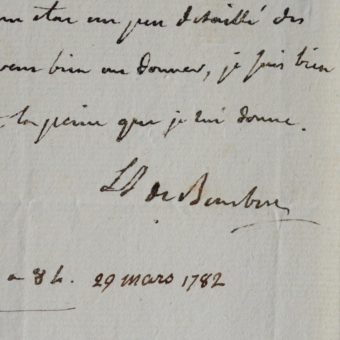 un etat un peu detaillé des
veux bien me donner, je suis bien
la peine que je lui donne.
de Bourbon
29 mars 1782